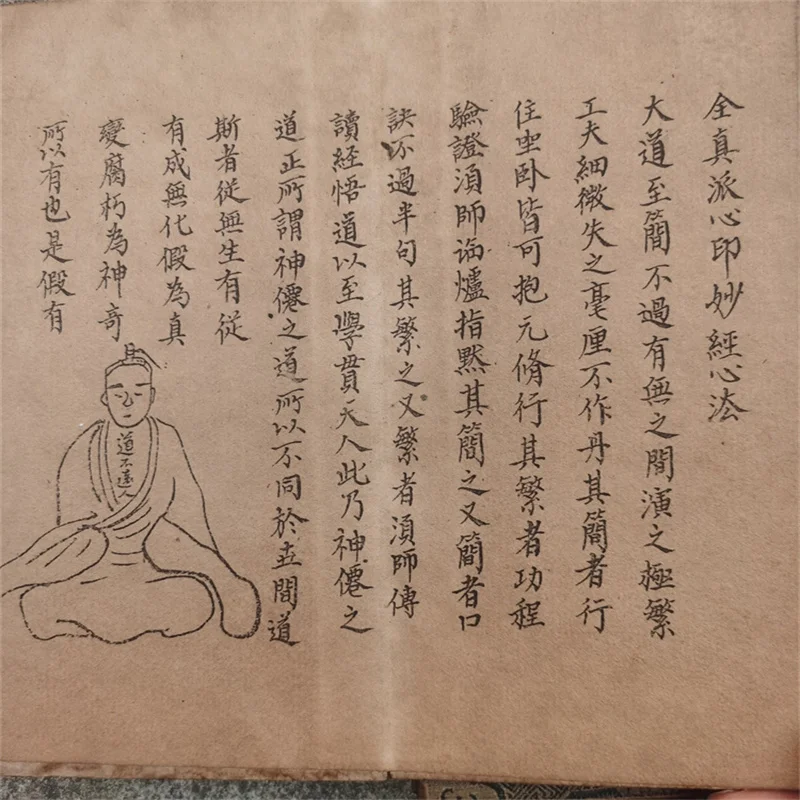 全真派心印妙經心法
大道至簡不過有無之間演之極繁
工夫細微失之毫厘不作丹其簡者行
住坐卧皆可抱元脩行其繁者功程
驗證須師詣爐指點其簡之又簡者口
訣不過半句其繁之又繁者須師傳
讀經悟道以至學貫天人此乃神僊之
道正所謂神僊之道所以不同於世間道
斯者從無生有從
有成無化假為真
變腐朽為神奇
所以有也是假有
道不遠人